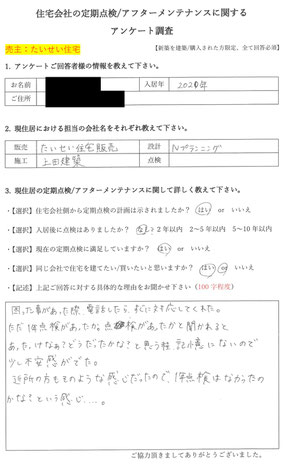 住宅会社の定期点検/アフターメンテナンスに関する
アンケート調査
売主：たいせい住宅
【新築を建築/購入された方限定、全て回答必須】
1. アンケートご回答者様の情報を教えて下さい。
お名前 入居年 2020年
ご住所
2. 現住居における担当の会社名をそれぞれ教えて下さい。
販売 たいせい住宅販売 設計 Nプランニング
施工 上田建築 点検
3. 現住居の定期点検/アフターメンテナンスに関して詳しく教えて下さい。
・【選択】住宅会社側から定期点検の計画は示されましたか？ はい or いいえ
・【選択】入居後に点検はありましたか？ なし・2年以内 2~5年以内 5~10年以内
・【選択】現在の定期点検に満足していますか？ はい or いいえ
・【選択】同じ会社で住宅を建てたい/買いたいと思いますか？ はい or いいえ
・【記述】上記ご回答に対する具体的な理由をお聞かせ下さい（100字程度）
困った事があった際、電話したら、すぐに対応してくれた。
ただ1年点検があったか、点検があったかと聞かれると
あったけな？どうだたかな？と思う程、記憶にないので
少し不安感がでた。
近所の方もそのような感じだったので、1年点検はなかったの
かな？という感じ…。
ご協力頂きましてありがとうございました。